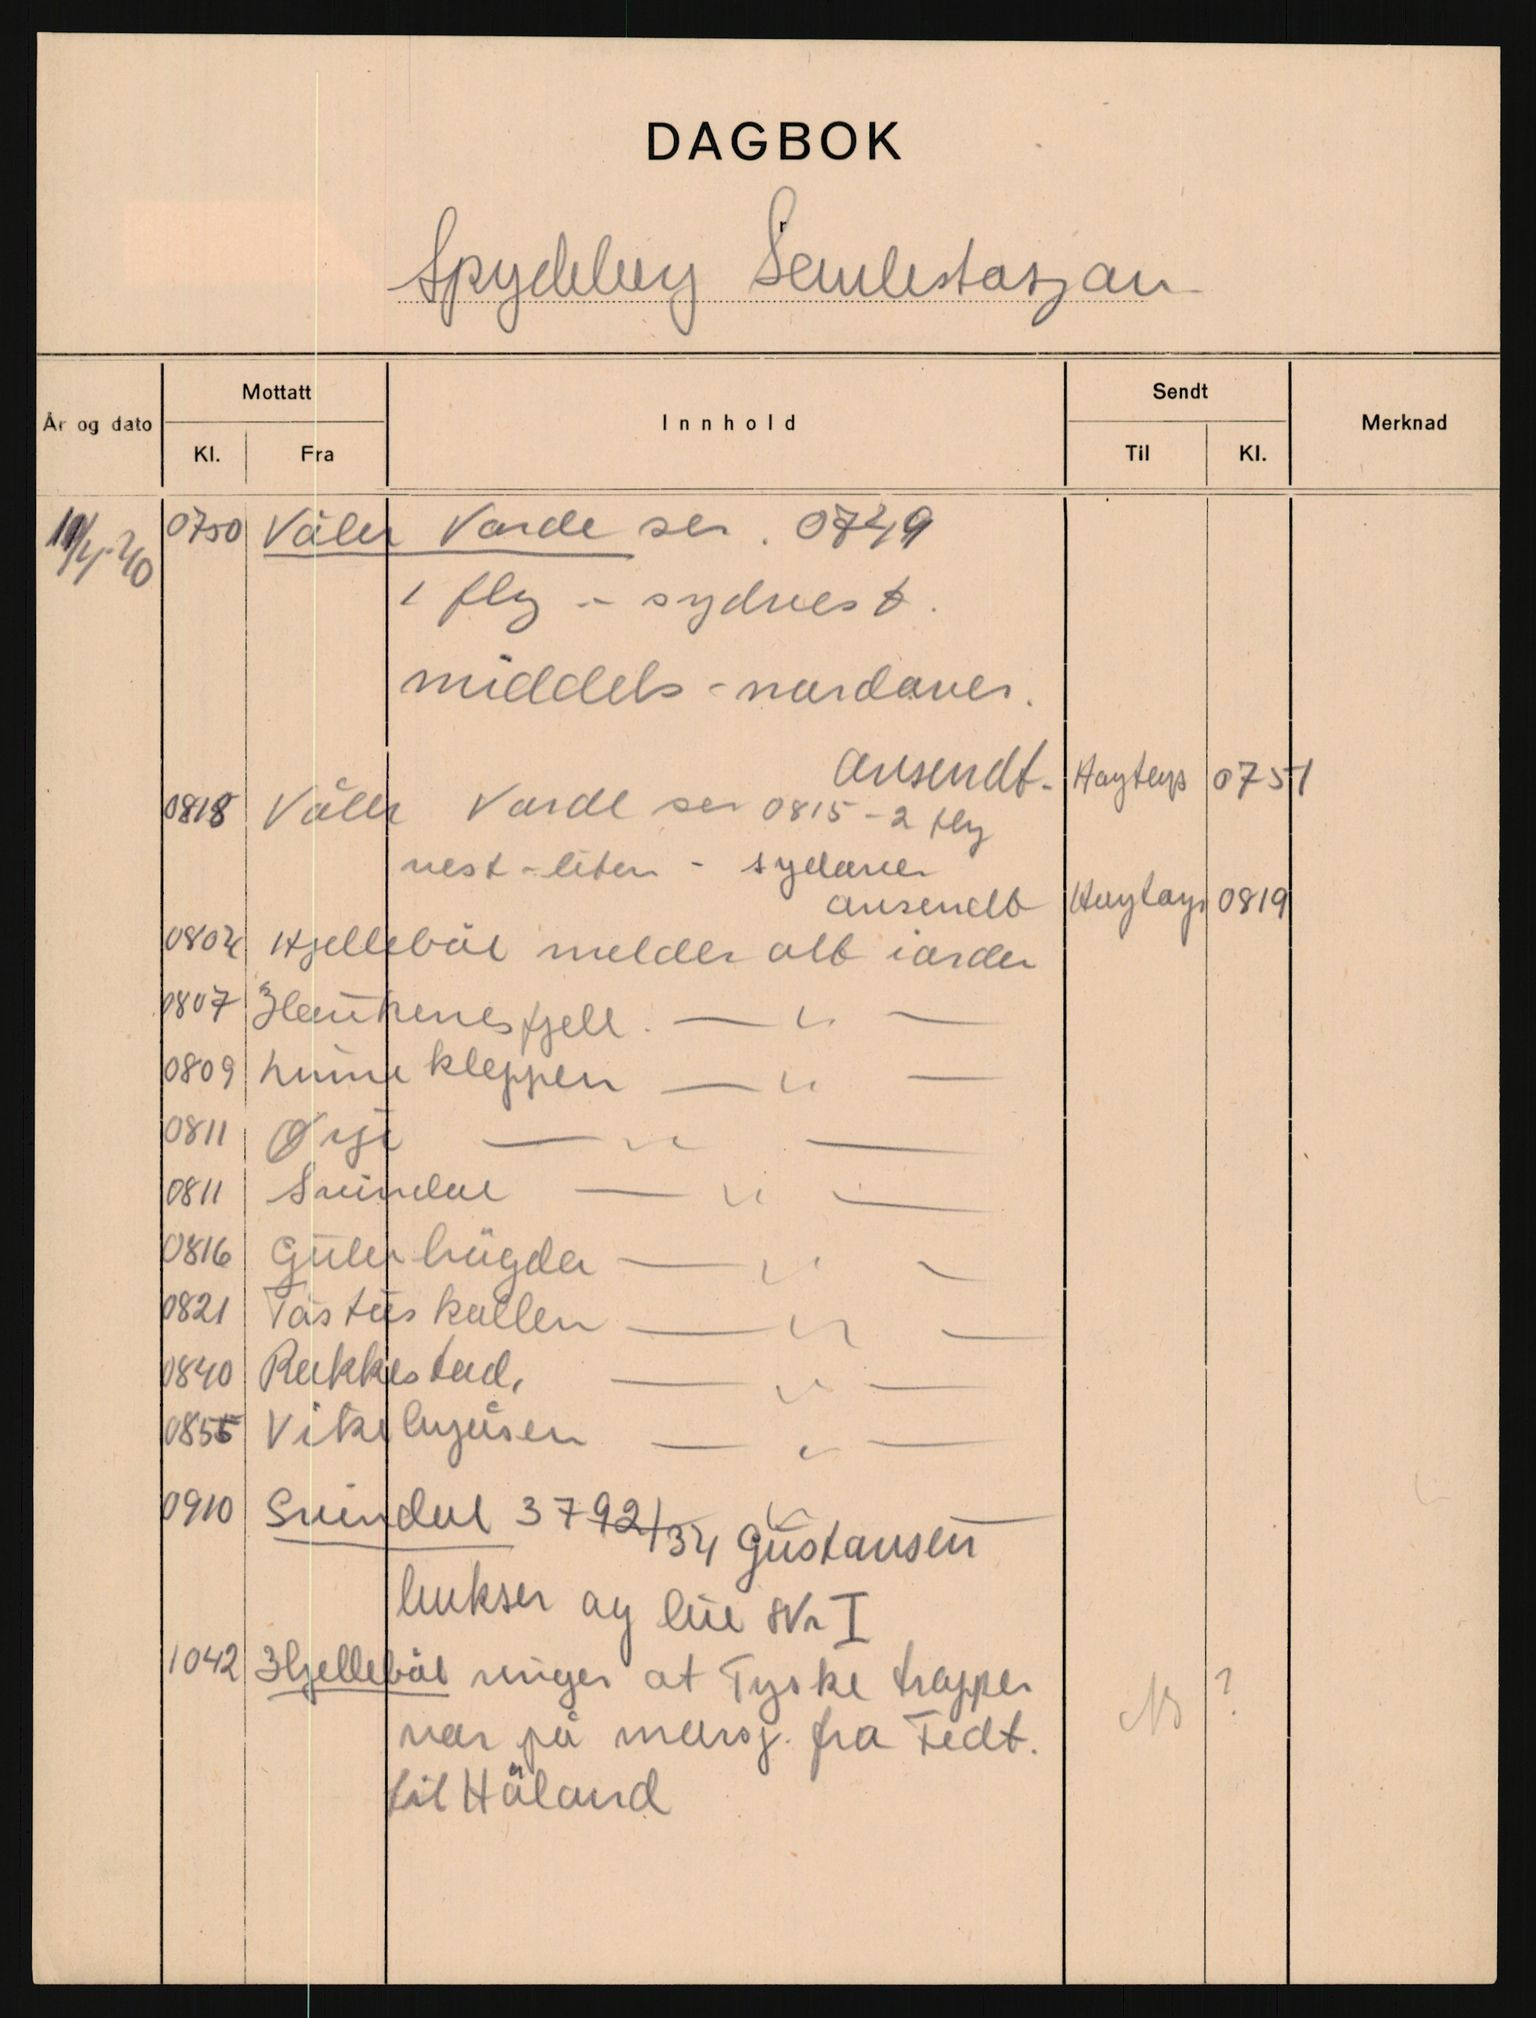 DAGBOK
Spydeberg Samlestasjon
År og dato
Mottatt
Kl.
Fra
Innhold
Sendt
Til
Kl.
Merknad
0750 Våler Varde ser. 0749
1 fly - sydvest.
middels - nordover.
avsendt - 0751
0818 Våler Varde ser 0815 - 2 fly
vest - liten - sydover
avsendt 0819
0804 Hjellebøl melder alt iorden
0807 Haukenesfjell. — " —
0809 Linnekleppen — " —
0811 Ørje — " —
0811 Svindal — " —
0816 — " —
0821 — " —
0840 Rakkestad, — " —
0855 — " —
0910 Svindal 3792/34 Gustavsen
bukser og lue Nr I
1042 Hjellebøl ringer at Tyske tropper
var på marsj. fra Fedt.
til Høland
?